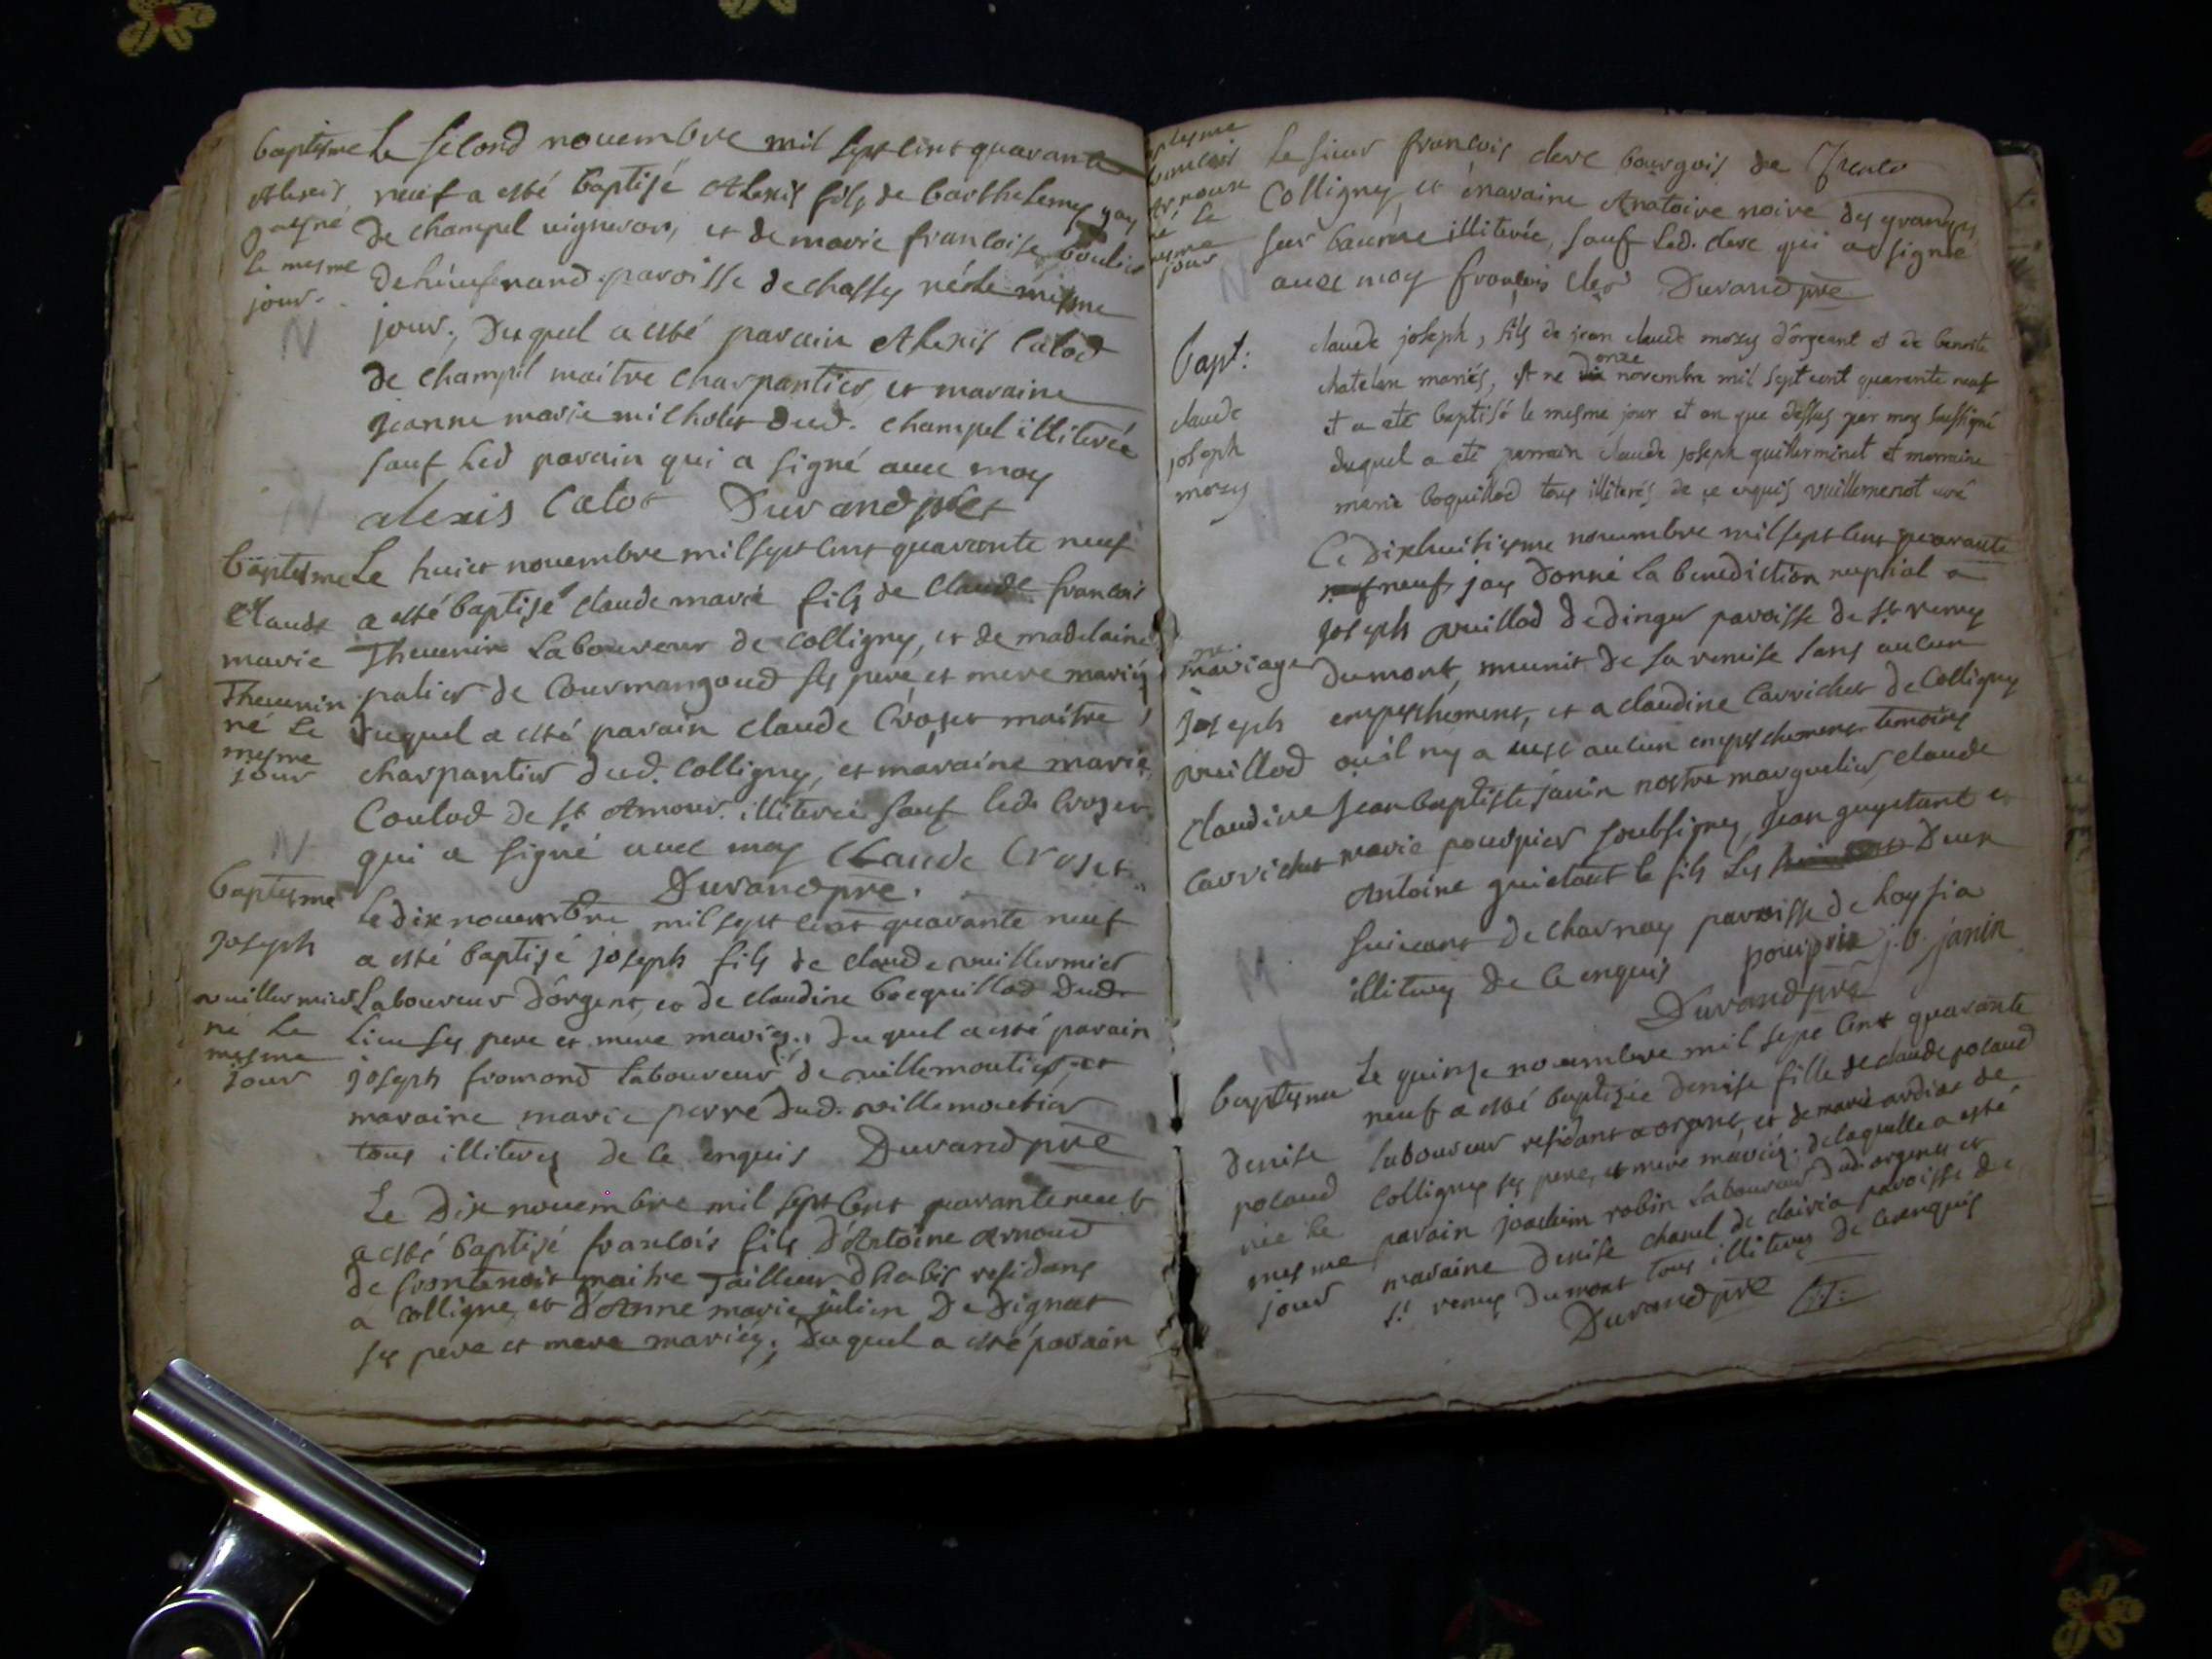 baptesme Le second novembre mil sept cent quarante
Alexis neuf a esté baptisé Alexis fils de barthelemy gay
né de champel vigneron, et de marie francoise
le mesme paroisse de chassy né le mesme
jour. jour. Duquel a esté parain Alexis Catod
N
de champel maitre charpantier, et maraine
Jeanne marie milholet dud. champel illiterée
sauf led parain qui a signé avec moy
alexis Catot Durand pre
baptesme Le huict novembre mil sept cent quarante neuf
Claude a esté baptisé claude marie fils de Claude francois
marie Thevenin Laboureur de colligny, et de madelaine
Thevenin palier de Courmangoud ses pere et mere mariés
né le duquel a esté parain claude Croset maitre
mesme
jour charpantier dud. Colligny, et maraine marie
Coulod de st Amour. illiterée sauf led. Croset
N
qui a signé avec moy Claude Croset
Durand pre.
baptesme le dix novembre mil sept cent quarante neuf
joseph a esté baptisé joseph fils de claude vuillermier
vuillermier Laboureur d'orgent, et de claudine bocquillod dud.
né le lieu ses pere et mere mariés. duquel a esté parain
mesme
jour joseph fromond laboureur de villemoutier, et
maraine marie perré dud. villemoutier
tous illiterés de ce enquis Durand pre
Le Dix novembre mil sept cent quarante neuf
a esté baptisé francois fils d'Antoine Arnoud
de maitre Tailleur d'habis residant
a colligny et d'Anne marie julien De Dignat
ses pere et mere mariés. Duquel a esté parain
francois
Arnoux
né le
mesme
jour
Le sieur francois clerc bourgois de
Colligny, et maraine Anatoire noire des granges
sur baume illiterée, sauf led. clerc qui a signé
avec moy francois clerc Durand pre
N
bapt:
claude
joseph
mozy
claude joseph, fils de jean claude mozy d'orgeant et de benoite
chatelan mariés, est ne dix onze novembre mil sept cent quarante neuf
et a ete baptisé le mesme jour et an que dessus par moy soussigné
duquel a ete parrain claude joseph guillerminet et marraine
marie boquillod tous illiterés de ce enquis vuillemenot curé
Le Dixhuitiesme novembre mil sept cent quarante
neuf, jay Donné la benediction nuptial a
joseph vuillod de dingier paroisse de st remy
mariage dumont, munit de sa remise sans aucun
joseph empeschement, et a claudine Carrichet de Colligny
vuillod ou il ny a eust aucun empeschement temoins
Claudine Jean baptiste janin nostre marguelier, claude
Carrichet marie poupier soubsignez, jean guyetant et
Antoine guietant le fils les Deux
suivant de charnay paroisse de loysia
illiterez de ce enquis poupier j. b. janin
M
Durand pre
N
baptesme Le quinze novembre mil sept cent quarante
neuf a esté baptisée denise fille de claude poland
Denise laboureur residant a orgent, et de marie ardiet de
poland Colligny ses pere, et mere mariés. de laquelle a esté
née le parain joachim robin laboureur dud. orgent et
mesme maraine denise chanel de clairia paroisse de
jour st remy dumont tous illiterez de ce enquis
Durand pre